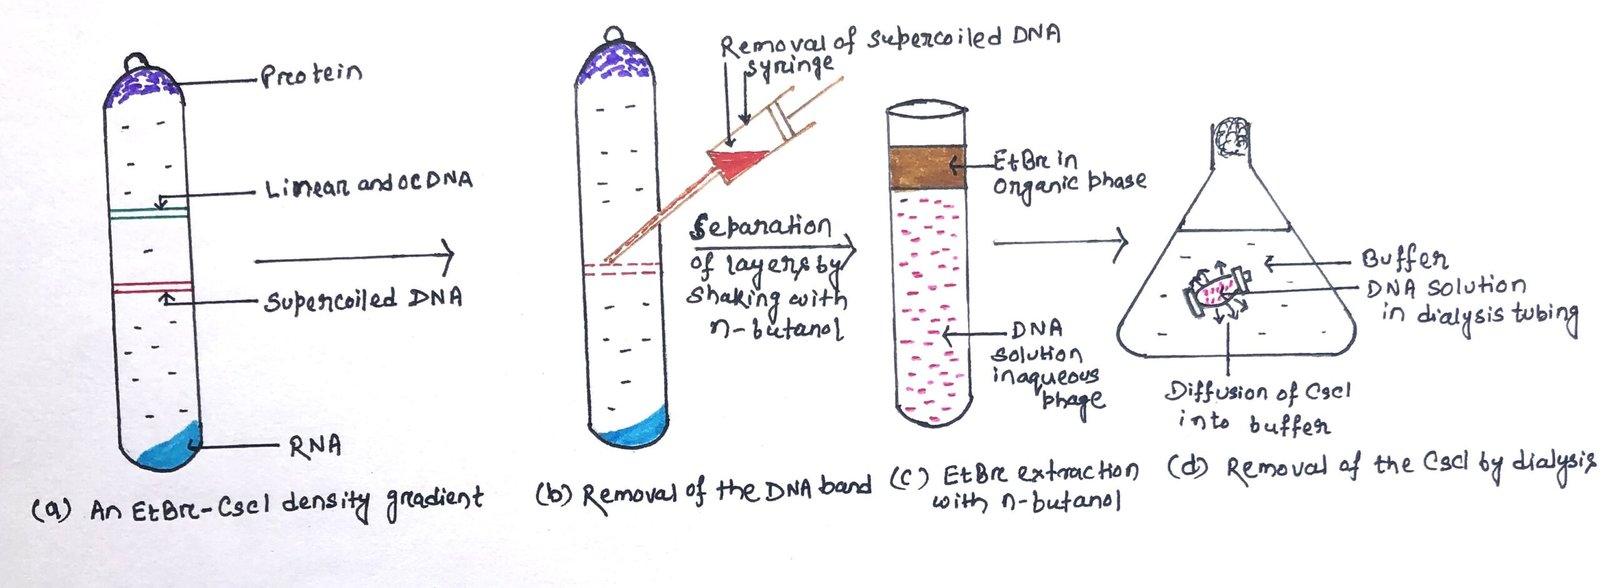 Protein
Linear and OC DNA
Supercoiled DNA
RNA
(a) An EtBr-Cscl density gradient
Removal of supercoiled DNA
syringe
Separation
of layers by
shaking with
n-butanol
(b) Removal of the DNA band
EtBr in
organic phase
DNA
solution
in aqueous
phage
(c) EtBr extraction
with n-butanol
Buffer
DNA solution
in dialysis tubing
Diffusion of Cscl
into buffer
(d) Removal of the Cscl by dialysis